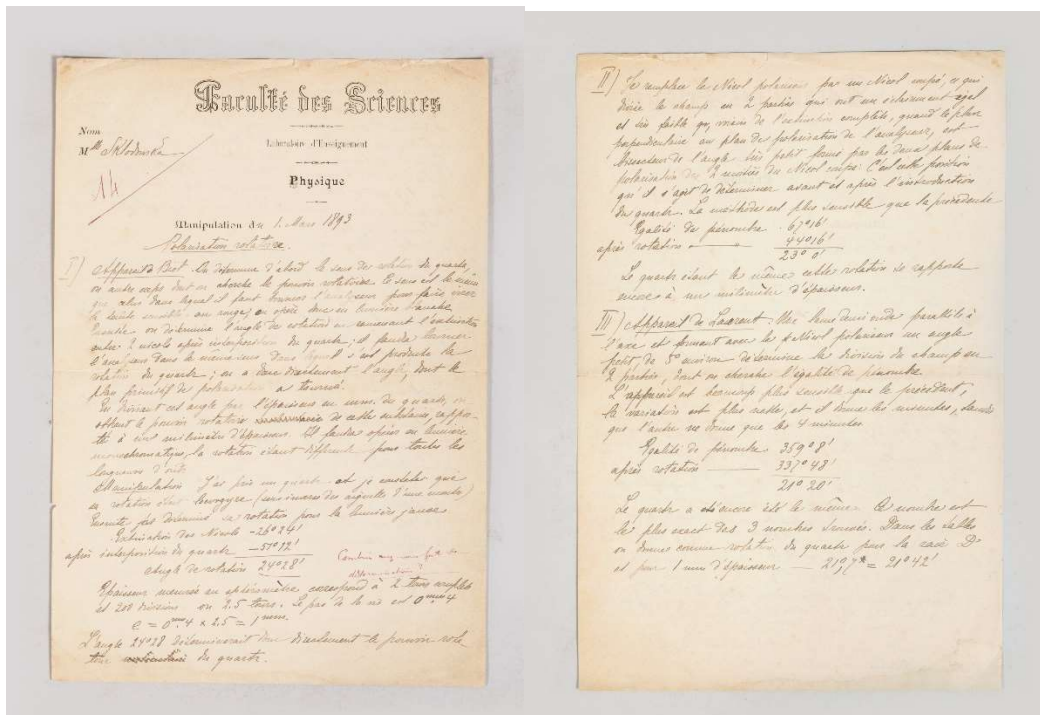 Faculté des Sciences
Nom
Mlle Sklodowska
Laboratoire d'Enseignement
14
Physique
Manipulation du 1. Mars 1893
Polarisation rotatoire.
I) Appareil Biot. On détermine d'abord le sens de rotation du quartz,
ou autre corps dont on cherche le pouvoir rotatoire. le sens est le même
que celui dans lequel il faut tourner l'analyseur pour faire virer
la teinte sensible au rouge; on opère donc en lumière blanche
Ensuite on détermine l'angle de rotation en ramenant l'extinction
entre 2 nicols après interposition du quartz; il faudra tourner
l'analyseur dans le même sens dans lequel s'est produite la
rotation du quartz; on a donc directement l'angle, dont le
plan primitif de polarisation a tourné.
En divisant cet angle par l'épaisseur en mm. du quartz, on
obtient le pouvoir rotatoire de cette substance, rappor-
té à un millimètre d'épaisseur. Il faudra opérer en lumière
monochromatique, la rotation étant différente pour toutes les
longueurs d'onde.
Manipulation J'ai pris un quartz et j'ai constaté que
sa rotation était levogyre (sens inverse des aiguilles d'une montre)
Ensuite j'ai déterminé sa rotation pour la lumière jaune
Extinction des Nicols -26°34'
après interposition du quartz
angle de rotation 24°28'
Combien avez-vous fait de
déterminations?
Epaisseur mesurée au sphéromètre correspond à 2 tours complets
et 200 divisions ou 2.5 tours. Le pas de la vis est 0mm4
e = 0mm.4 x 2.5 = 1mm.
L'angle 24°28 déterminerait donc directement le pouvoir rota-
toire du quartz.
II) Je remplace le Nicol polariseur par un Nicol coupé, ce qui
divise le champ en 2 parties qui ont un éclairement égal
et très faible, mais de l'extinction complète, quand le plan
perpendiculaire au plan de polarisation de l'analyseur, est
bissecteur de l'angle très petit formé par les deux plans de
polarisation des 2 moitiés du Nicol coupé. C'est cette position
qu'il s'agit de déterminer avant et après l'introduction
du quartz. La méthode est plus sensible que la précédente
Egalité de pénombre 67°16'
après rotation 44°16'
23° 0'
Le quartz étant le même cette rotation se rapporte
encore à un millimètre d'épaisseur.
III) Appareil de Laurent: Une lame demi onde parallèle à
l'axe et formant avec le Nicol polariseur un angle
petit de 5° environ détermine la division du champ en
2 parties, dont on cherche l'égalité de pénombre
L'appareil est beaucoup plus sensible que le précédent,
la variation est plus nette, et il donne les minutes, tandis
que l'autre ne donne que les 4 minutes.
Egalité de pénombre 359°8'
après rotation 337°48'
21° 20'
Le quartz a encore été le même. Ce nombre est
le plus exact des 3 nombres trouvés. Dans les tables
on donne comme rotation du quartz pour la raie D
et pour 1 mm d'épaisseur — 21°,7 = 21°42'